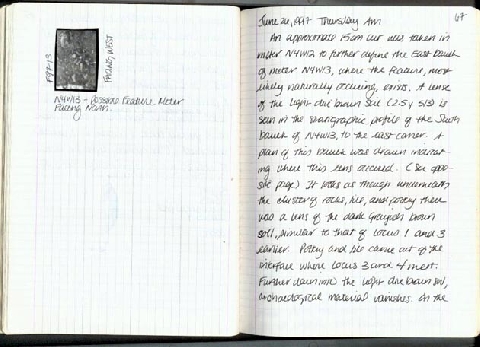 FACING WEST
N4W13 - Possible Feature. Meter
Facing North.
67
June 26, 1997 Thursday AM.
An approximate 15cm cut was taken in
meter N4W12 to further define the East baulk
of meter N4W13, where the feature, most
likely naturally occuring, exists. A lense
of the light olive brown soil (2.5 Y 5/3) is
seen in the stratigraphic profile of the South
baulk of N4W13, to the east corner. A
plan of this baulk was drawn indicat-
ing where this lens occured. (See oppo-
site page) It looks as though underneath
the cluster of rocks, tile, and pottery there
was a lens of the dark grayish brown
soil, similar to that of locus 1 and 3
earlier. Pottery and tile came out of the
interface where locus 3 and 4 meet.
Further down into the light olive brown soil,
archaeological material vanishes. In the